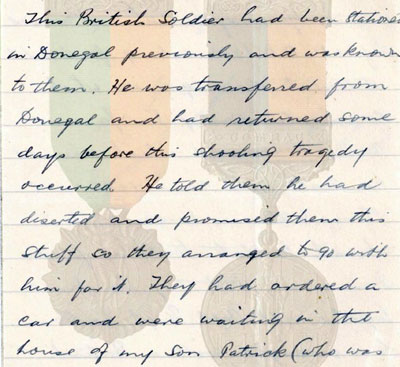 This British Soldier had been stationed
in Donegal previously and was known
to them. He was transferred from
Donegal and had returned some
days before this shooting tragedy
occurred He told them he had
diserted and promised them this
stuff so they arranged to go with
him for it. They had ordered a
car and were waiting in the
house of my son Patrick (who was